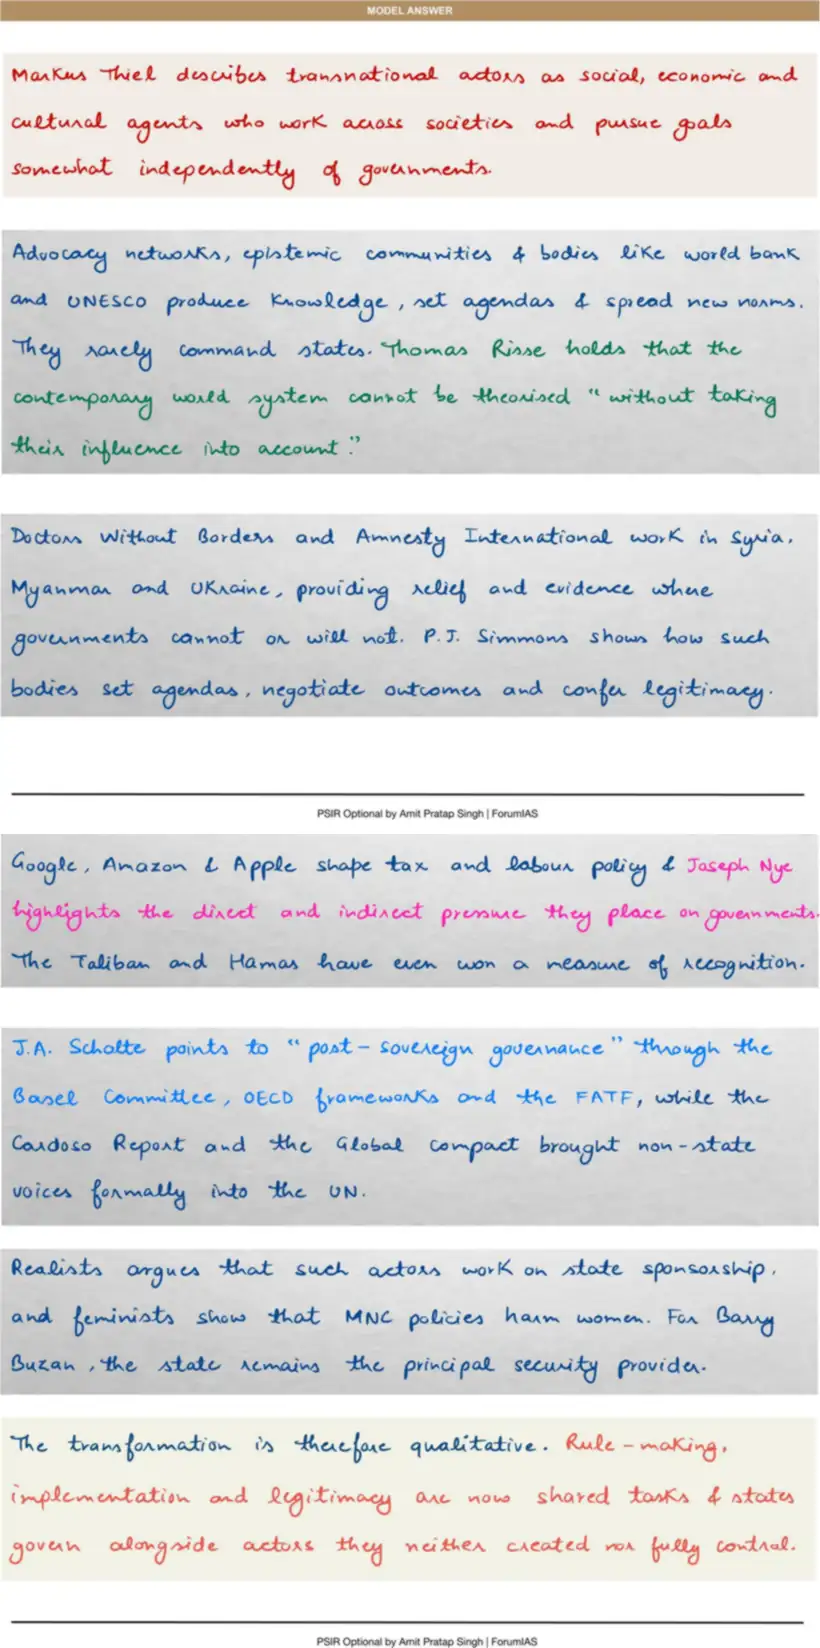 MODEL ANSWER
Markus Thiel describes transnational actors as social, economic and
cultural agents who work across societies and pursue goals
somewhat independently of governments.
Advocacy networks, epistemic communities & bodies like world bank
and UNESCO produce knowledge, set agendas & spread new norms.
They rarely command states. Thomas Risse holds that the
contemporary world system cannot be theorised "without taking
their influence into account."
Doctors Without Borders and Amnesty International work in Syria,
Myanmar and Ukraine, providing relief and evidence where
governments cannot or will not. P.J. Simmons shows how such
bodies set agendas, negotiate outcomes and confer legitimacy.
PSIR Optional by Amit Pratap Singh | ForumIAS
Google, Amazon & Apple shape tax and labour policy & Joseph Nye
highlights the direct and indirect pressure they place on governments.
The Taliban and Hamas have even won a measure of recognition.
J.A. Scholte points to "post-sovereign governance" through the
Basel Committee, OECD frameworks and the FATF, while the
Cardoso Report and the Global Compact brought non-state
voices formally into the UN.
Realists argues that such actors work on state sponsorship,
and feminists show that MNC policies harm women. For Barry
Buzan, the state remains the principal security provider.
The transformation is therefore qualitative. Rule-making,
implementation and legitimacy are now shared tasks & states
govern alongside actors they neither created nor fully control.
PSIR Optional by Amit Pratap Singh | ForumIAS